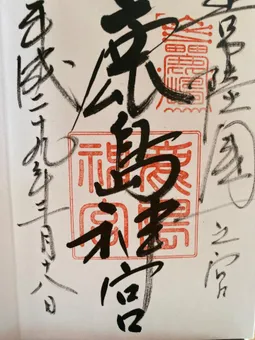 常陸国一之宮
鹿島神宮
鹿島
神宮
平成二十九年三月十八日